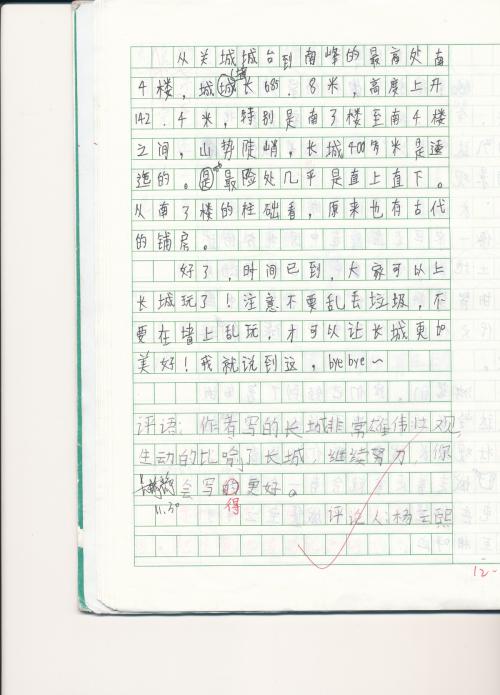 从关城城台到南峰的最高处南
4楼，城墙长685.8米，高度上升
142.4米，特别是南3楼至南4楼
之间，山势陡峭，长城400多米是建
造的。最险处几乎是直上直下。
从南3楼的柱础看，原来也有古代
的铺房。
好了，时间已到，大家可以上
长城玩了！注意不要乱丢垃圾，不
要在墙上乱玩，才可以让长城更加
美好！我就说到这，byebye～
评语：作者写的长城非常雄伟壮观，
生动的比喻了长城，继续努力，你
会写的更好。
11.30
得
评论人：杨云熙
12-